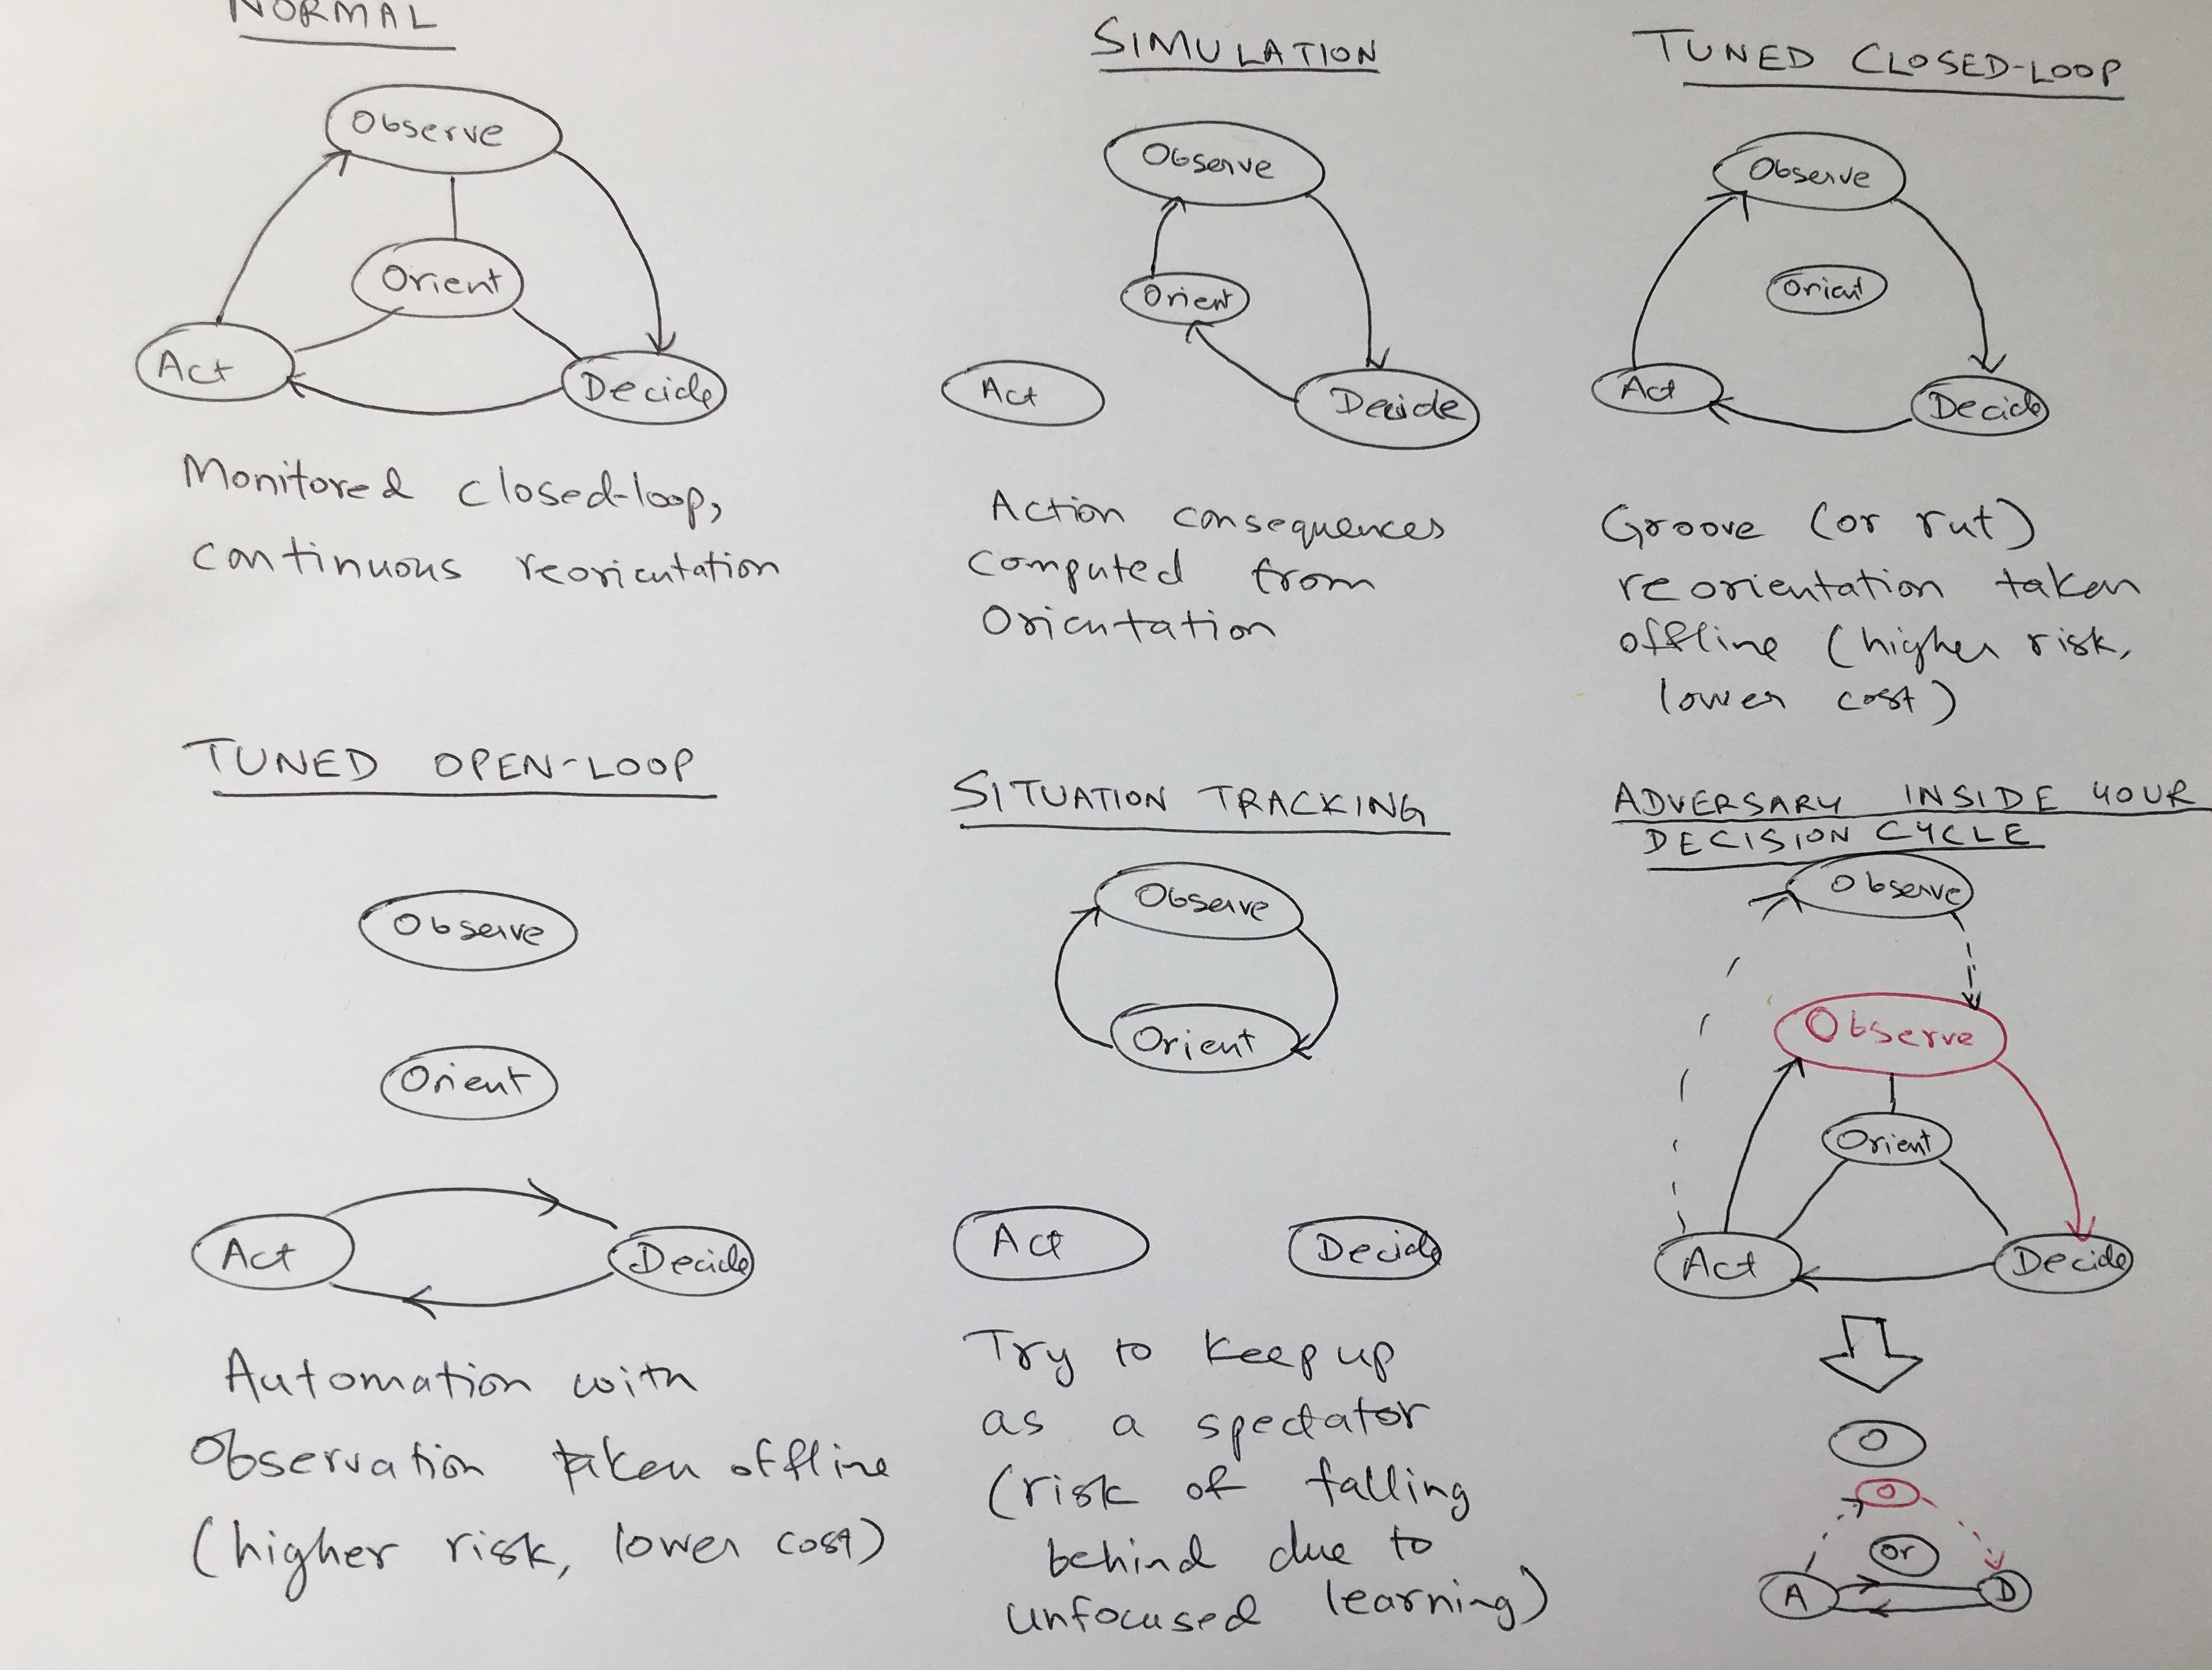 NORMAL
Observe
Orient
Act
Decide
Monitored closed-loop,
continuous reorientation
SIMULATION
Observe
Orient
Act
Decide
Action consequences
computed from
Orientation
TUNED CLOSED-LOOP
Observe
Orient
Act
Decide
Groove (or rut)
reorientation taken
offline (higher risk,
lower cost)
TUNED OPEN-LOOP
Observe
Orient
Act
Decide
Automation with
Observation taken offline
(higher risk, lower cost)
SITUATION TRACKING
Observe
Orient
Act
Decide
Try to keep up
as a spectator
(risk of falling
behind due to
unfocused learning)
ADVERSARY INSIDE YOUR
DECISION CYCLE
Observe
Observe
Orient
Act
Decide
O
O
Or
A
D